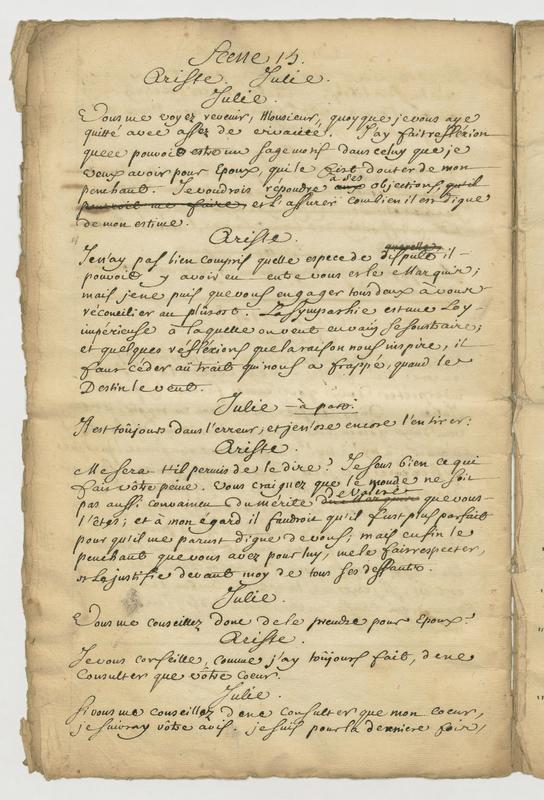 Scene 15.
Ariste. Julie.
Julie.
Vous me voyez revenir, Monsieur, quoyque je vous aye
quitté avec assez de vivacité. J'ay fait refléxion
que le pouvoit estre un sage motif dans celuy que je
veux avoir pour Epoux, qui le fist douter de mon
penchant. Je voudrois répondre aux à ses objections qu'il
pourroit me faire, et l'assurer combien il est digne
de mon estime.
Ariste.
Je n'ay pas bien compris quelle espece de querelle dispute il
pouvoit y avoir eu entre vous et le Marquis;
mais je ne puis que vous engager tous deux à vous
réconcilier au plûtost. La sympathie est une Loy
impérieuse à laquelle on veut en vain se soustraire;
et quelques réfléxions que la raison nous inspire, il
faut céder au trait qui nous a frappé, quand le
Destin le veut.
Julie à part.
Il est toujours dans l'erreur, et je n'ose encore l'en tirer.
Ariste.
Me sera t'il permis de le dire? Je sens bien ce qui
fait vôtre peine. Vous craignez que le monde ne soit
pas aussi convaincu du mérite du Marquis de Valere que vous
l'êtes; et à mon égard il faudroit qu'il fust plus parfait
pour qu'il me parust digne de vous; mais enfin le
penchant que vous avez pour luy, me le fait respecter,
et le justifie devant moy de tous ses deffauts.
Julie.
Vous me conseillez donc de le prendre pour Epoux?
Ariste.
Je vous conseille, comme j'ay toûjours fait, de ne
consulter que vôtre coeur.
Julie.
Si vous me conseillez de ne consulter que mon coeur,
je suivray vôtre avis. je suis pour la derniere fois,